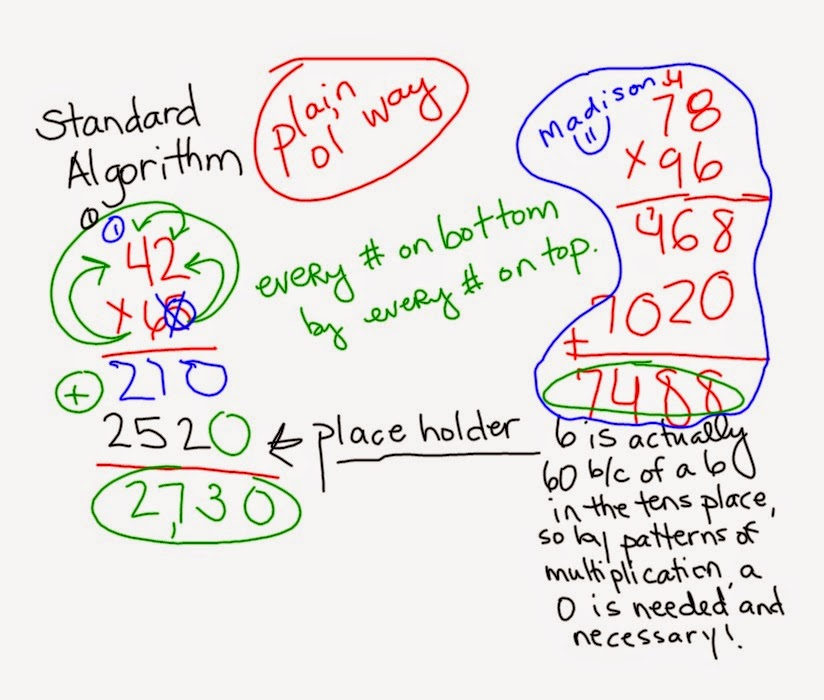 Standard
Algorithm
plain
ol way
1
42
x 65
210
+
2520
2,730
every # on bottom
by every # on top.
place holder
Madison
4
78
x 96
1
468
+ 7020
7488
6 is actually
60 b/c of a 6
in the tens place,
so by patterns of
multiplication, a
0 is needed and
necessary!